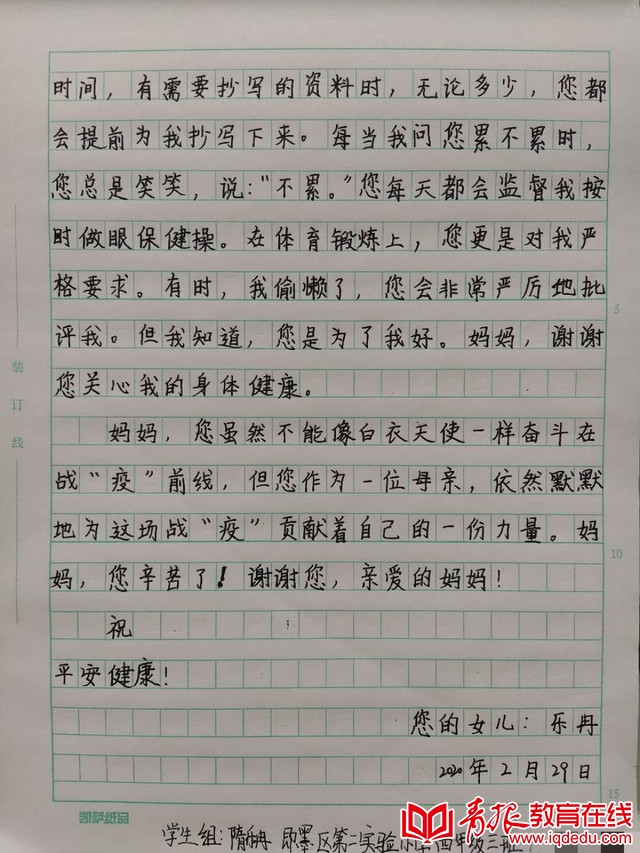 时间，有需要抄写的资料时，无论多少，您都
会提前为我抄写下来。每当我问您累不累时，
您总是笑笑，说：“不累。”您每天都会监督我按
时做眼保健操。在体育锻炼上，您更是对我严
格要求。有时，我偷懒了，您会非常严厉地批
评我。但我知道，您是为了我好。妈妈，谢谢
您关心我的身体健康。
妈妈，您虽然不能像白衣天使一样奋斗在
战“疫”前线，但您作为一位母亲，依然默默
地为这场战“疫”贡献着自己的一份力量。妈
妈，您辛苦了！谢谢您，亲爱的妈妈！
祝
平安健康！
您的女儿：乐冉
2020年2月29日
学生组：隋乐冉 即墨区第二实验小学四年级三班
装订线
5
10
15
凯萨纸品
青报教育在线
www.iqdedu.com